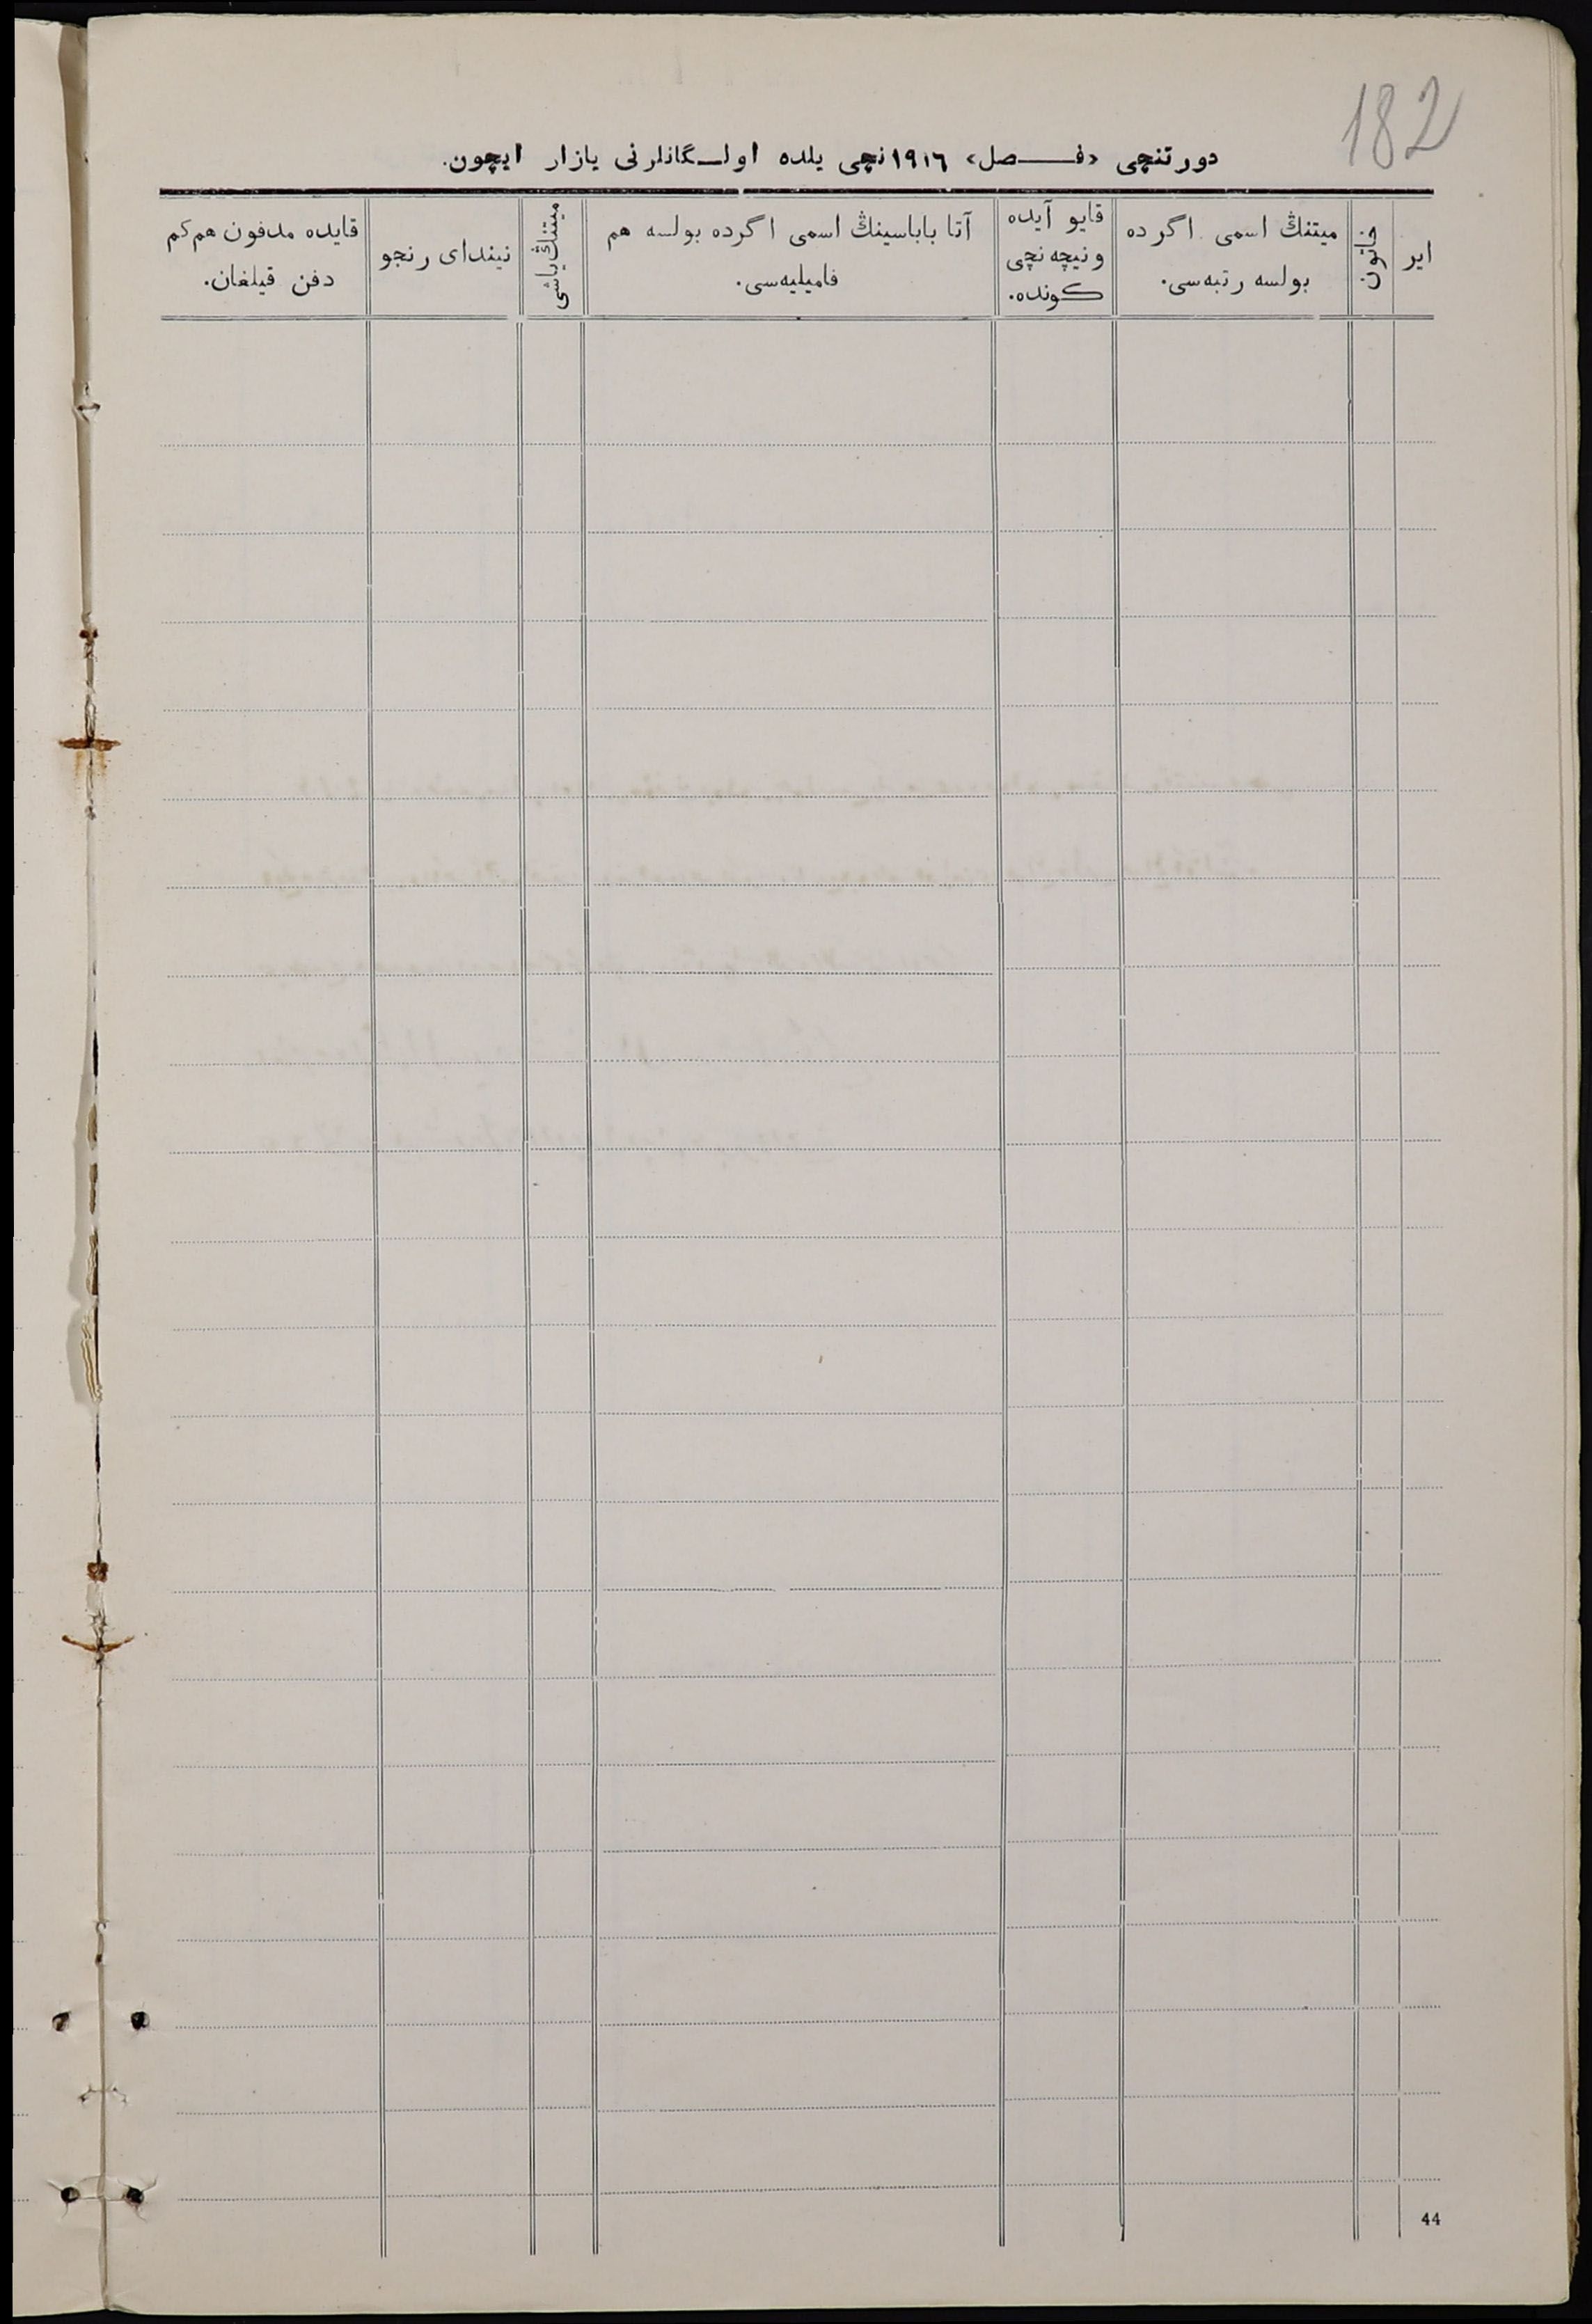 182
دورتنچی «فـــصل» ١٩١٦ نچی یلده اولـگانلرنی یازار ایچون.
ایر
خاتون
میتنڭ اسمی اگرده
بولسه رتبه‌سی.
قایو آیده
ونیچه نچی
کونده.
آتا باباسینڭ اسمی اگرده بولسه هم
فامیلیه‌سی.
میتنڭ یاشی
نیندای رنجو
قایده مدفون هم کم
دفن قیلغان.
44